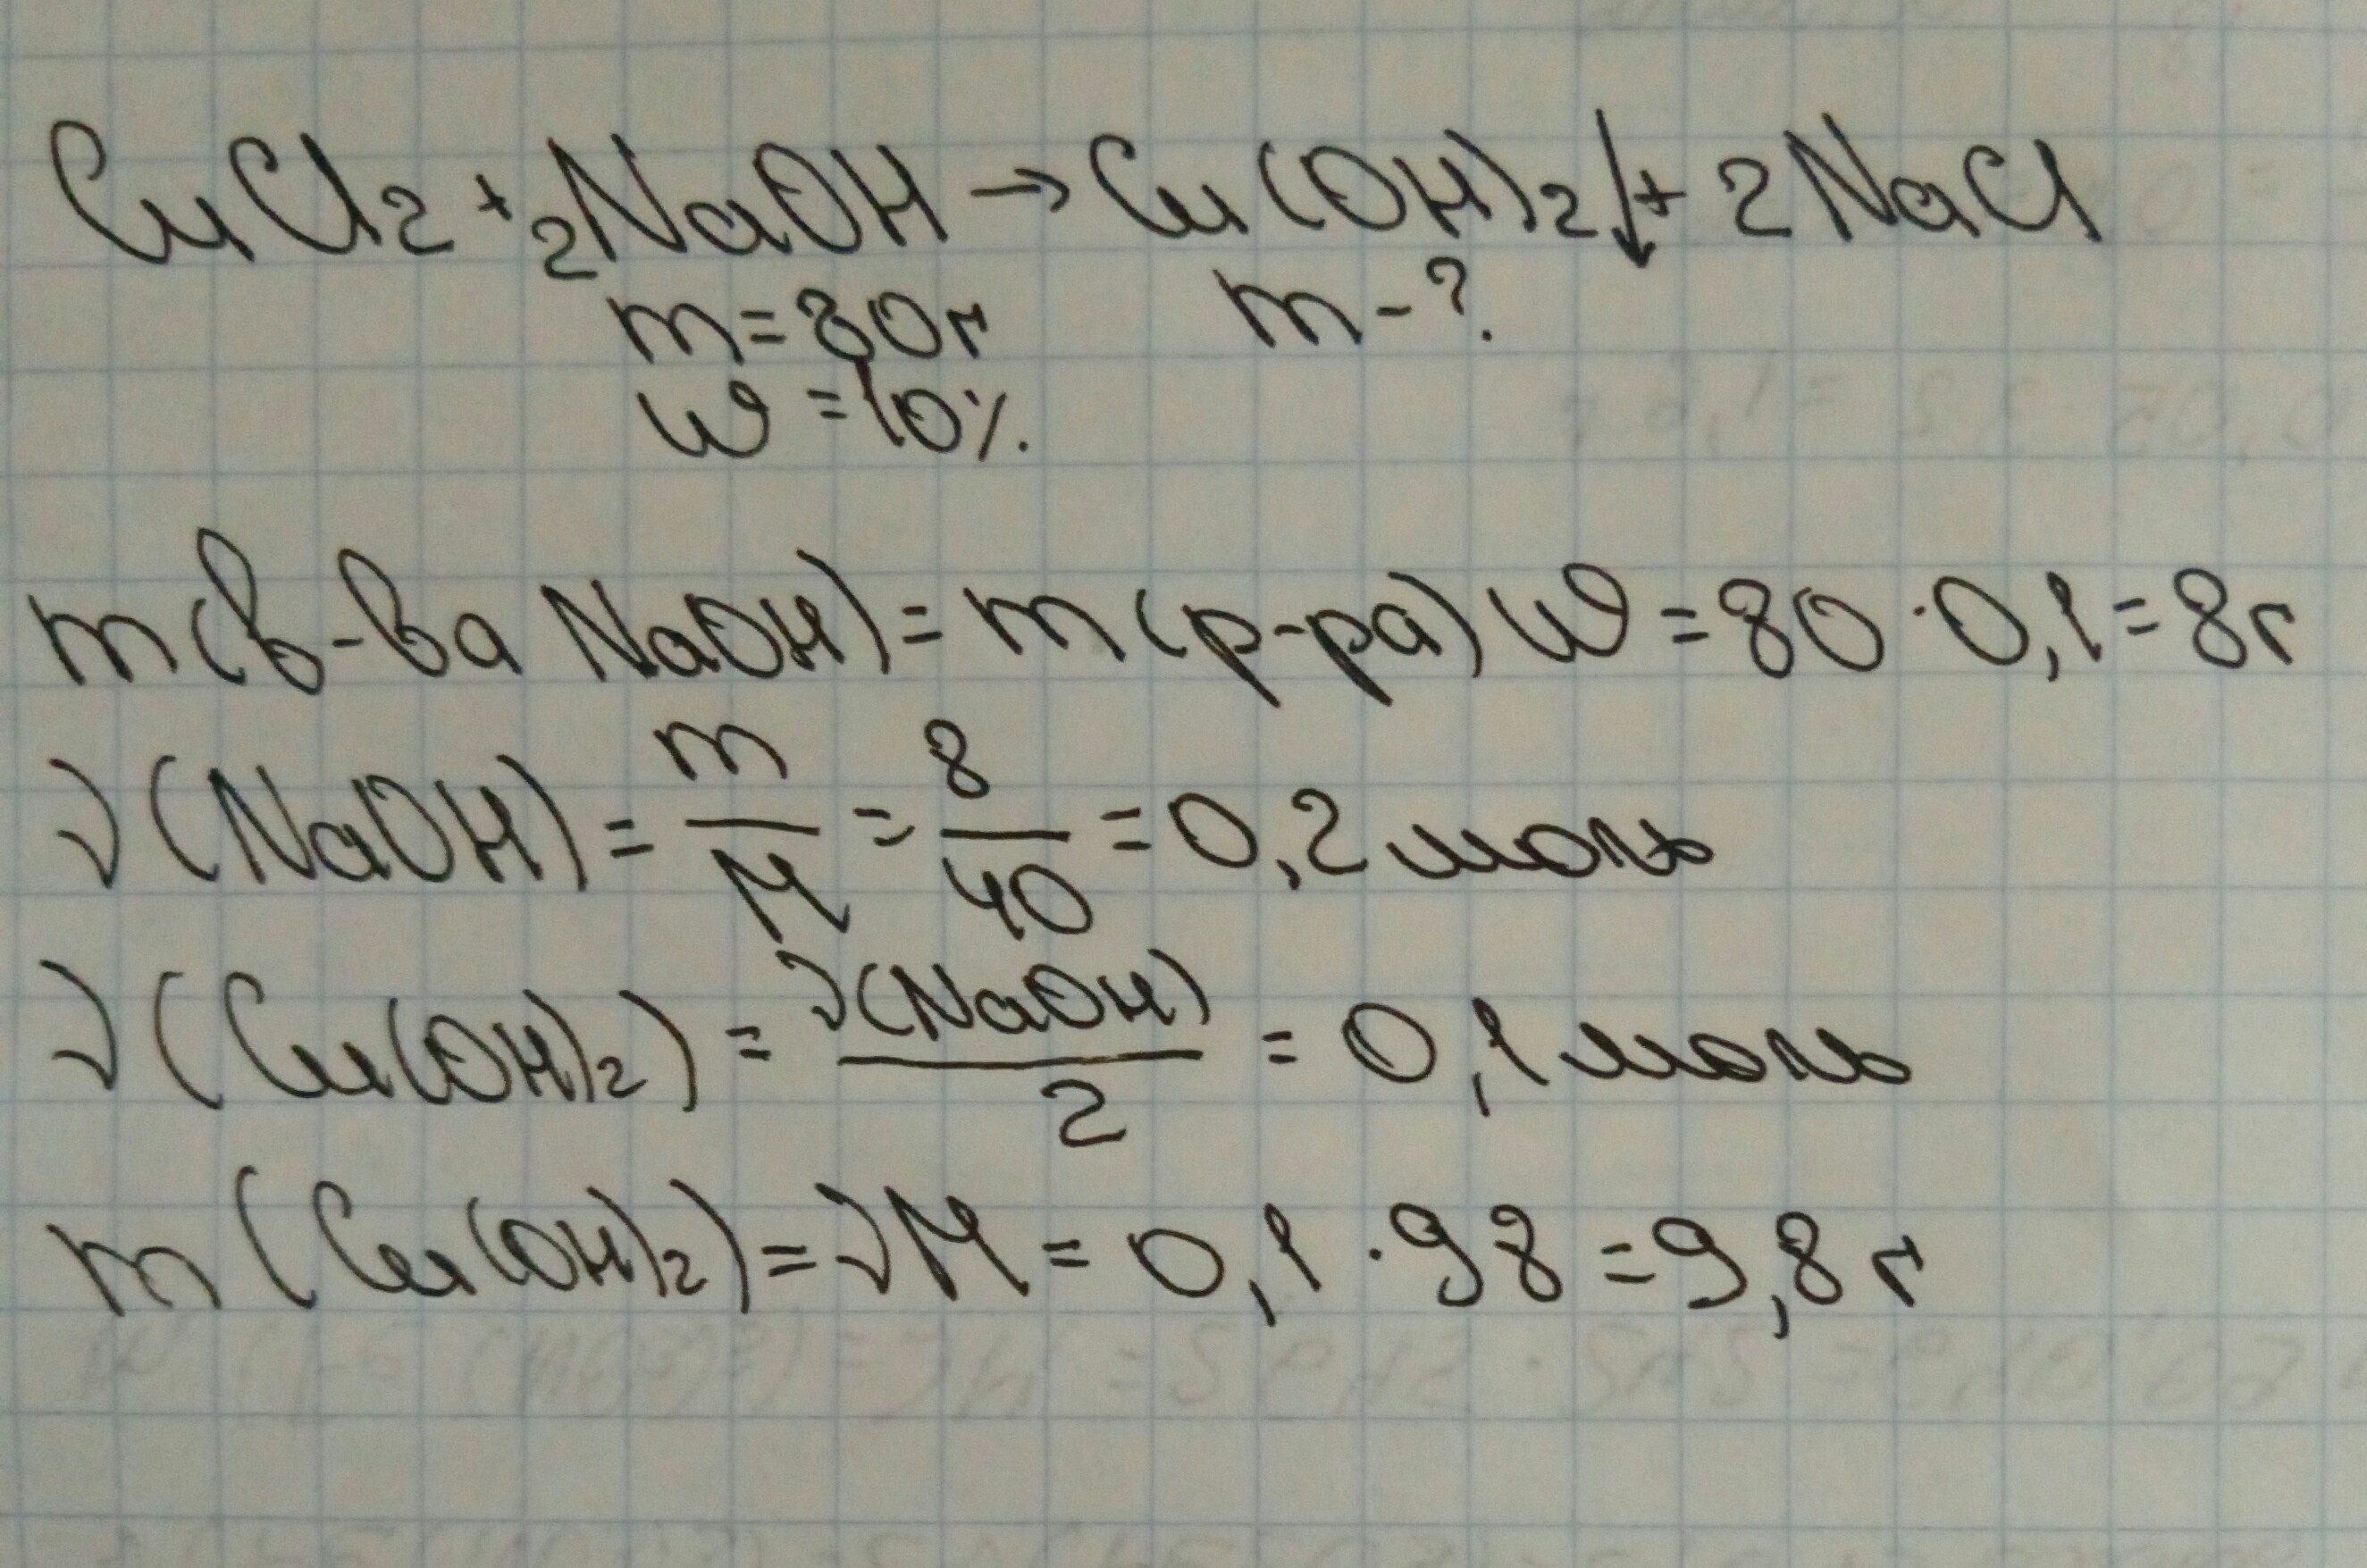 CuCl₂ + 2NaOH → Cu(OH)₂↓ + 2NaCl
m = 80г m - ?
ω = 10%.
m(в-ва NaOH) = m(р-ра) ω = 80 · 0,1 = 8г
ν(NaOH) = m/M = 8/40 = 0,2 моль
ν(Cu(OH)₂) = ν(NaOH)/2 = 0,1 моль
m(Cu(OH)₂) = νM = 0,1 · 98 = 9,8 г